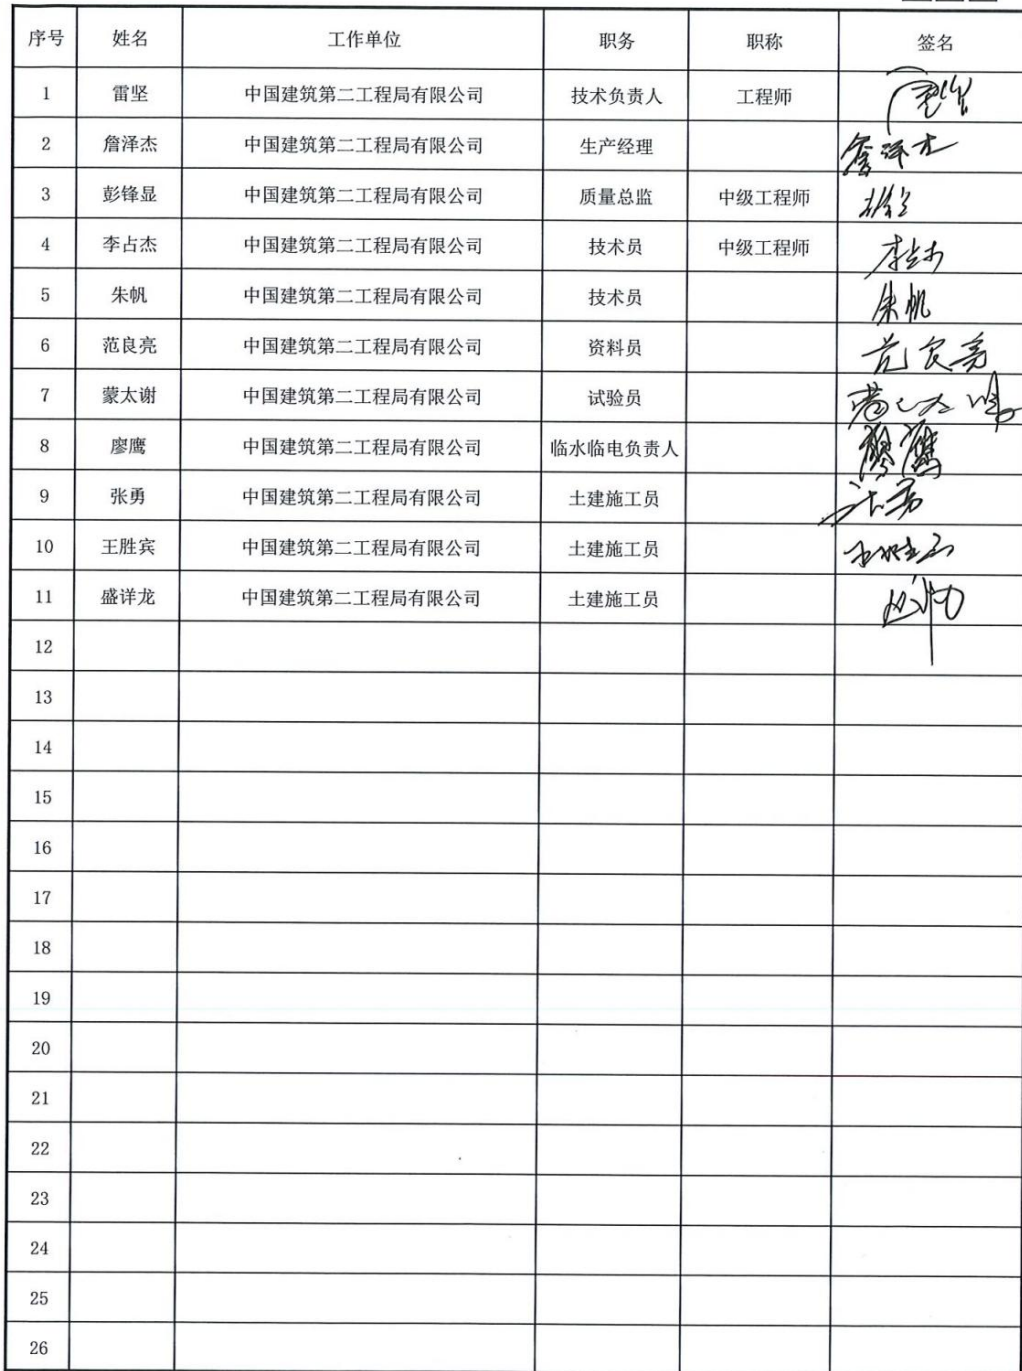 序号 姓名 工作单位 职务 职称 签名
1 雷坚 中国建筑第二工程局有限公司 技术负责人 工程师
2 詹泽杰 中国建筑第二工程局有限公司 生产经理 詹泽杰
3 彭锋显 中国建筑第二工程局有限公司 质量总监 中级工程师
4 李占杰 中国建筑第二工程局有限公司 技术员 中级工程师 李占杰
5 朱帆 中国建筑第二工程局有限公司 技术员 朱帆
6 范良亮 中国建筑第二工程局有限公司 资料员 范良亮
7 蒙太谢 中国建筑第二工程局有限公司 试验员
8 廖鹰 中国建筑第二工程局有限公司 临水临电负责人 廖鹰
9 张勇 中国建筑第二工程局有限公司 土建施工员 张勇
10 王胜宾 中国建筑第二工程局有限公司 土建施工员
11 盛详龙 中国建筑第二工程局有限公司 土建施工员
12
13
14
15
16
17
18
19
20
21
22
23
24
25
26